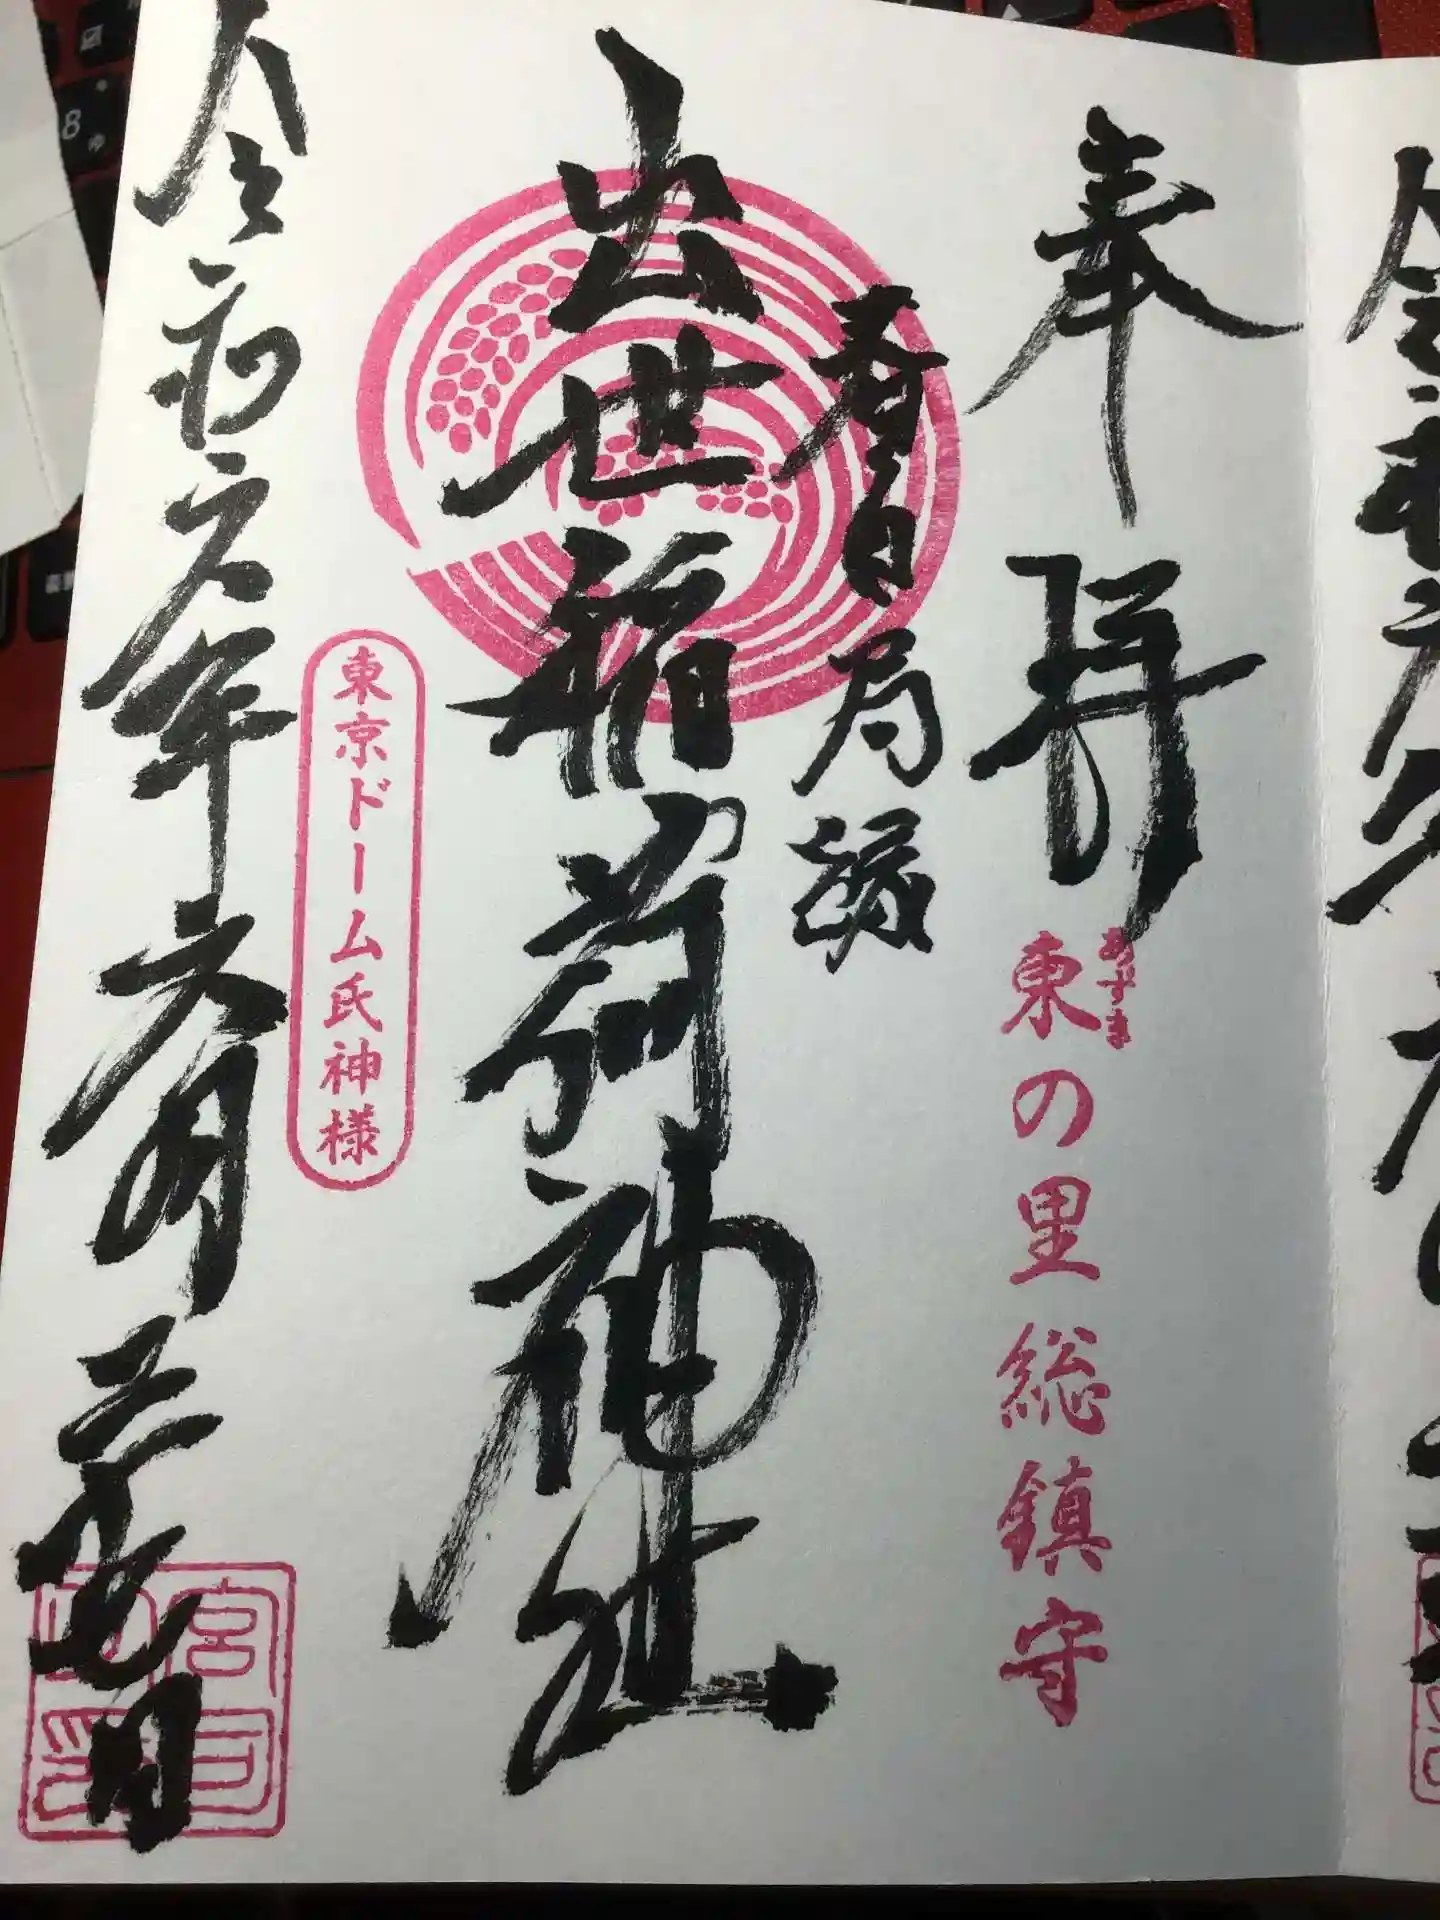 奉拝
あずま
東の里総鎮守
春日局縁
出世稲荷神社
東京ドーム氏神様
令和六年六月二十七日
宮司
8
ゆ